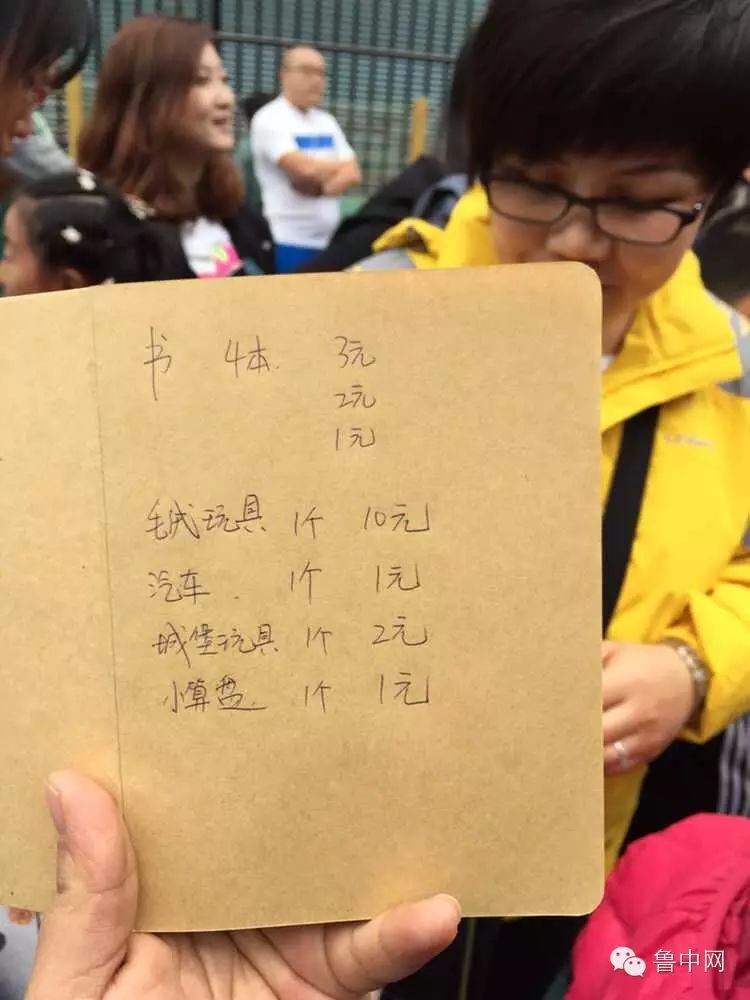 书 4本. 3元
2元
1元
毛绒玩具 1个 10元
汽车. 1个 1元
城堡玩具 1个 2元
小算盘. 1个 1元
鲁中网